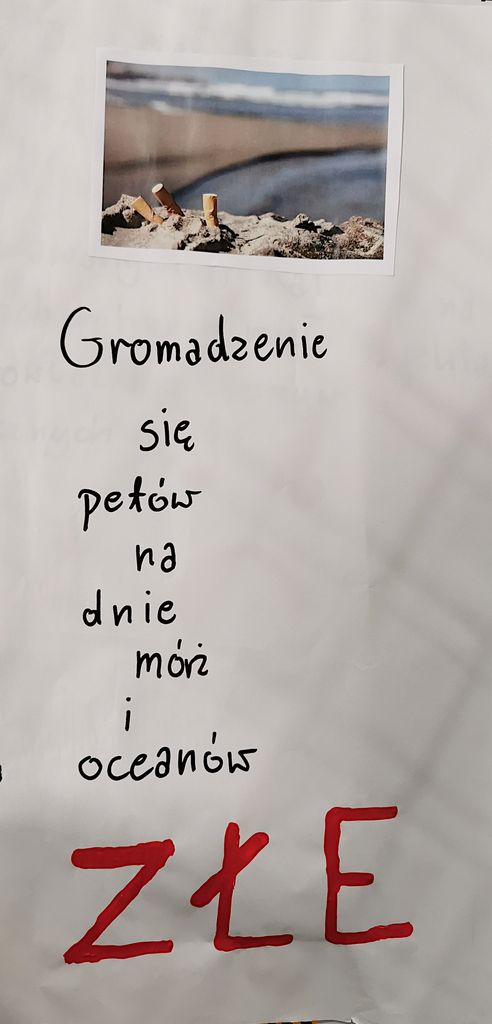 Gromadzenie
się
petów
na
dnie
mórz
i
oceanów
ZŁE